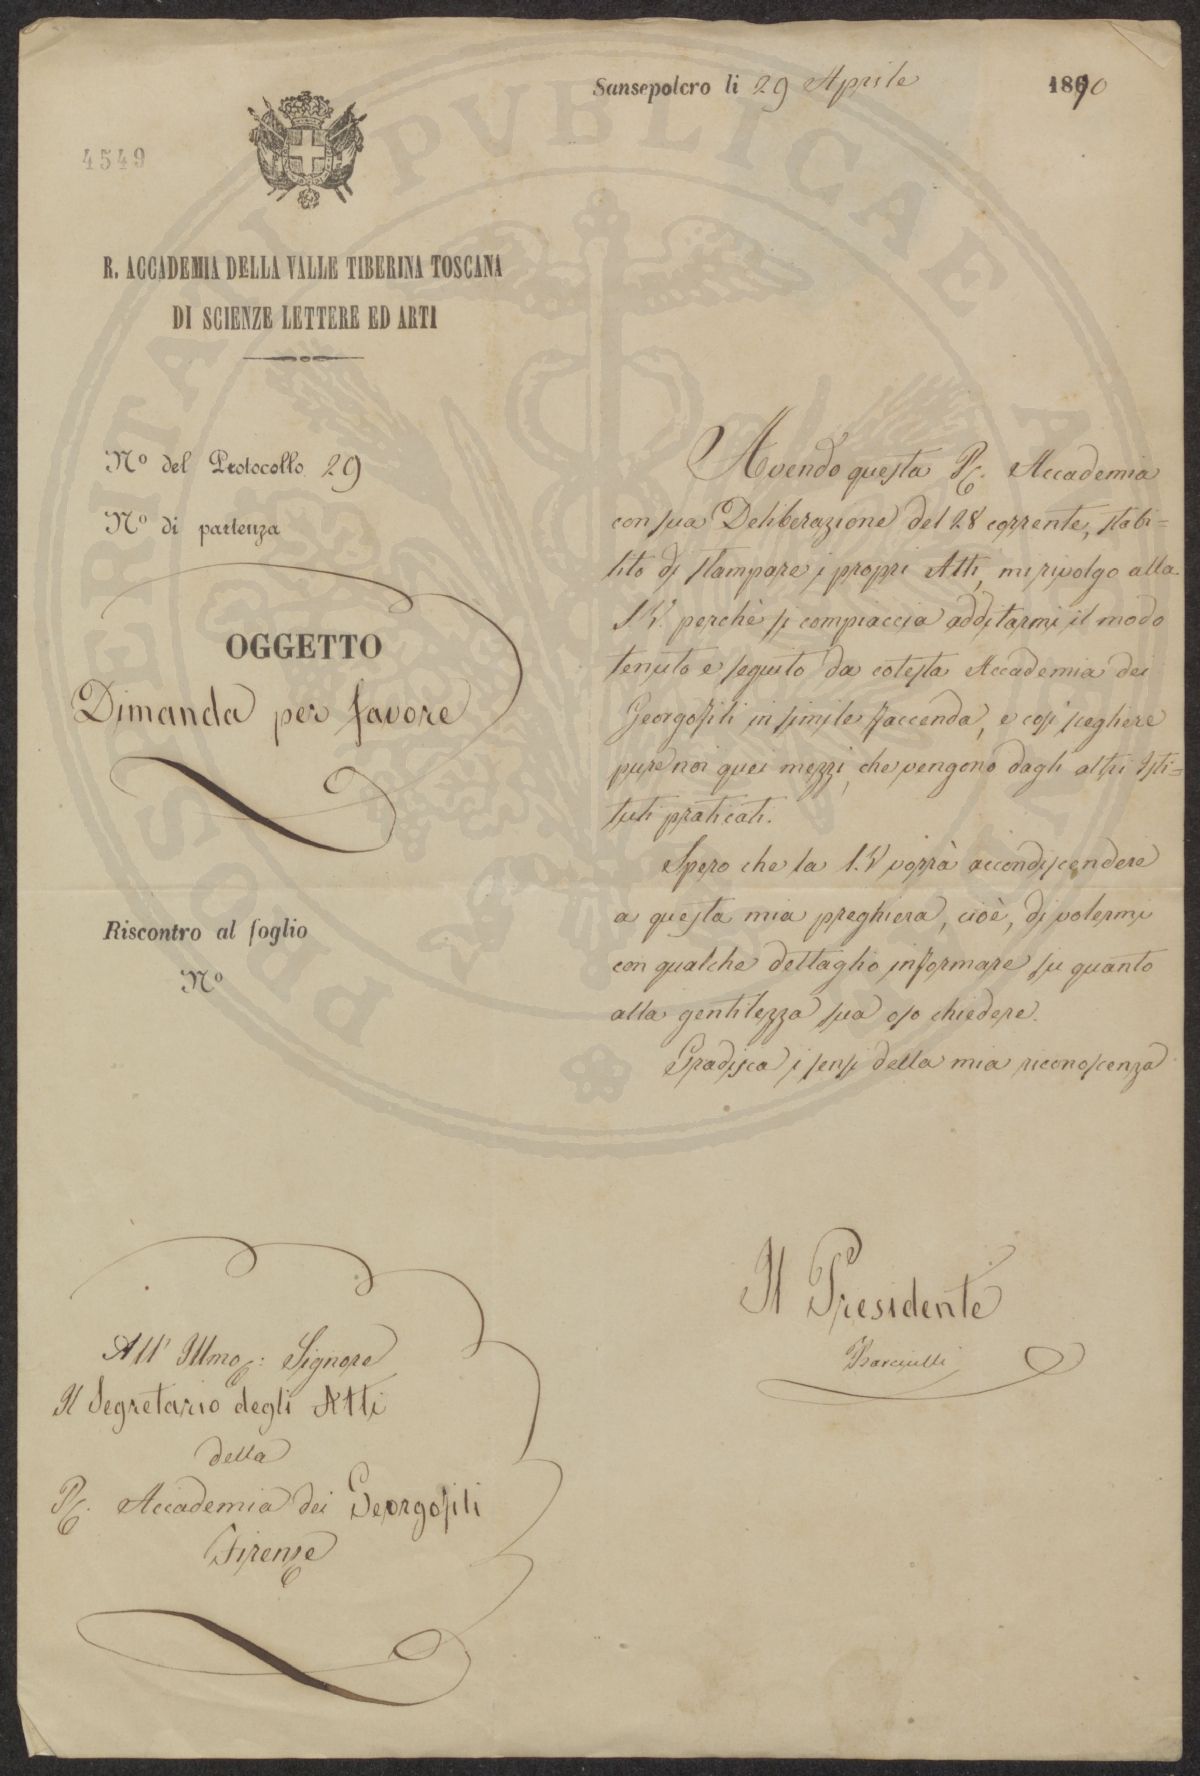 Sansepolcro li 29 Aprile 1870
4549
R. ACCADEMIA DELLA VALLE TIBERINA TOSCANA
DI SCIENZE LETTERE ED ARTI
Nº del Protocollo 29
Nº di partenza
OGGETTO
Dimanda per favore
Riscontro al foglio
Nº
Avendo questa R. Accademia
con sua Deliberazione del 28 corrente, stabi=
lito di stampare i propri Atti, mi rivolgo alla
S.V. perchè si compiaccia additarmi il modo
tenuto e seguito da cotesta Accademia dei
Georgofili in simile faccenda, e così scegliere
pure noi quei mezzi, che vengono dagli altri Isti=
tuti praticati.
Spero che la S.V vorrà accondiscendere
a questa mia preghiera, cioè, di volermi
con qualche dettaglio informare su quanto
alla gentilezza sua oso chiedere.
Gradisca i sensi della mia riconoscenza
Il Presidente
All' Illmo: Signore
Il Segretario degli Atti
della
R. Accademia dei Georgofili
Firenze
PROSPERITATI PVBLICAE AVGENDAE